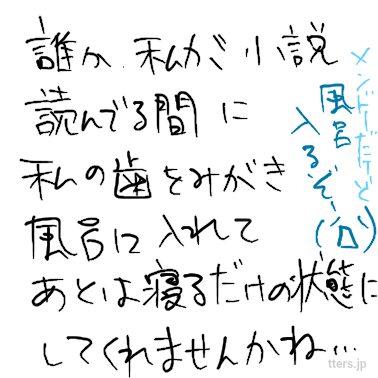 誰か 私が小説
読んでる間に
私の歯をみがき
風呂に入れて
あとは寝るだけの状態に
してくれませんかね…
メンドーだけど
風呂
入るぞー
tters.jp